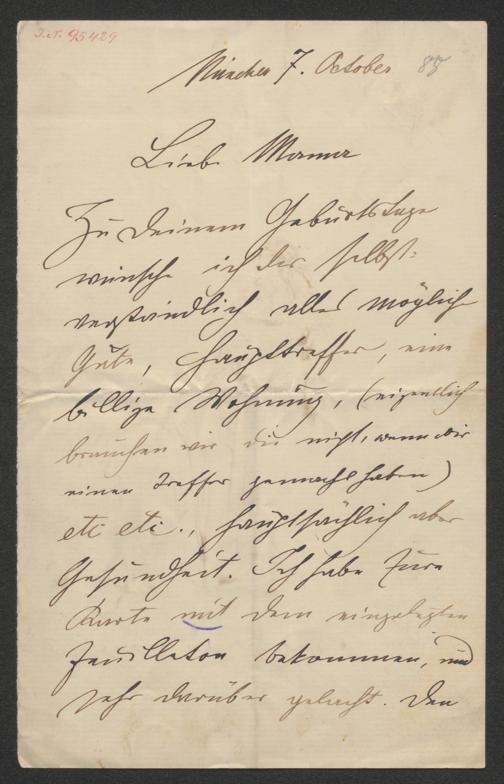 I.N. 95429
München 7. October 85
Liebe Mama
Zu Deinem Geburtstage
wünsche ich dir selbst-
verständlich alles mögliche
Gute, Haupttreffer, eine
billige Wohnung, (eigentlich
brauchen wir die nicht, wenn wir
einen Treffer gemacht haben)
etc etc., hauptsächlich aber
Gesundheit. Ich habe Eure
Karte mit dem eingelegten
Feuilleton bekommen, und
sehr darüber gelacht. Den